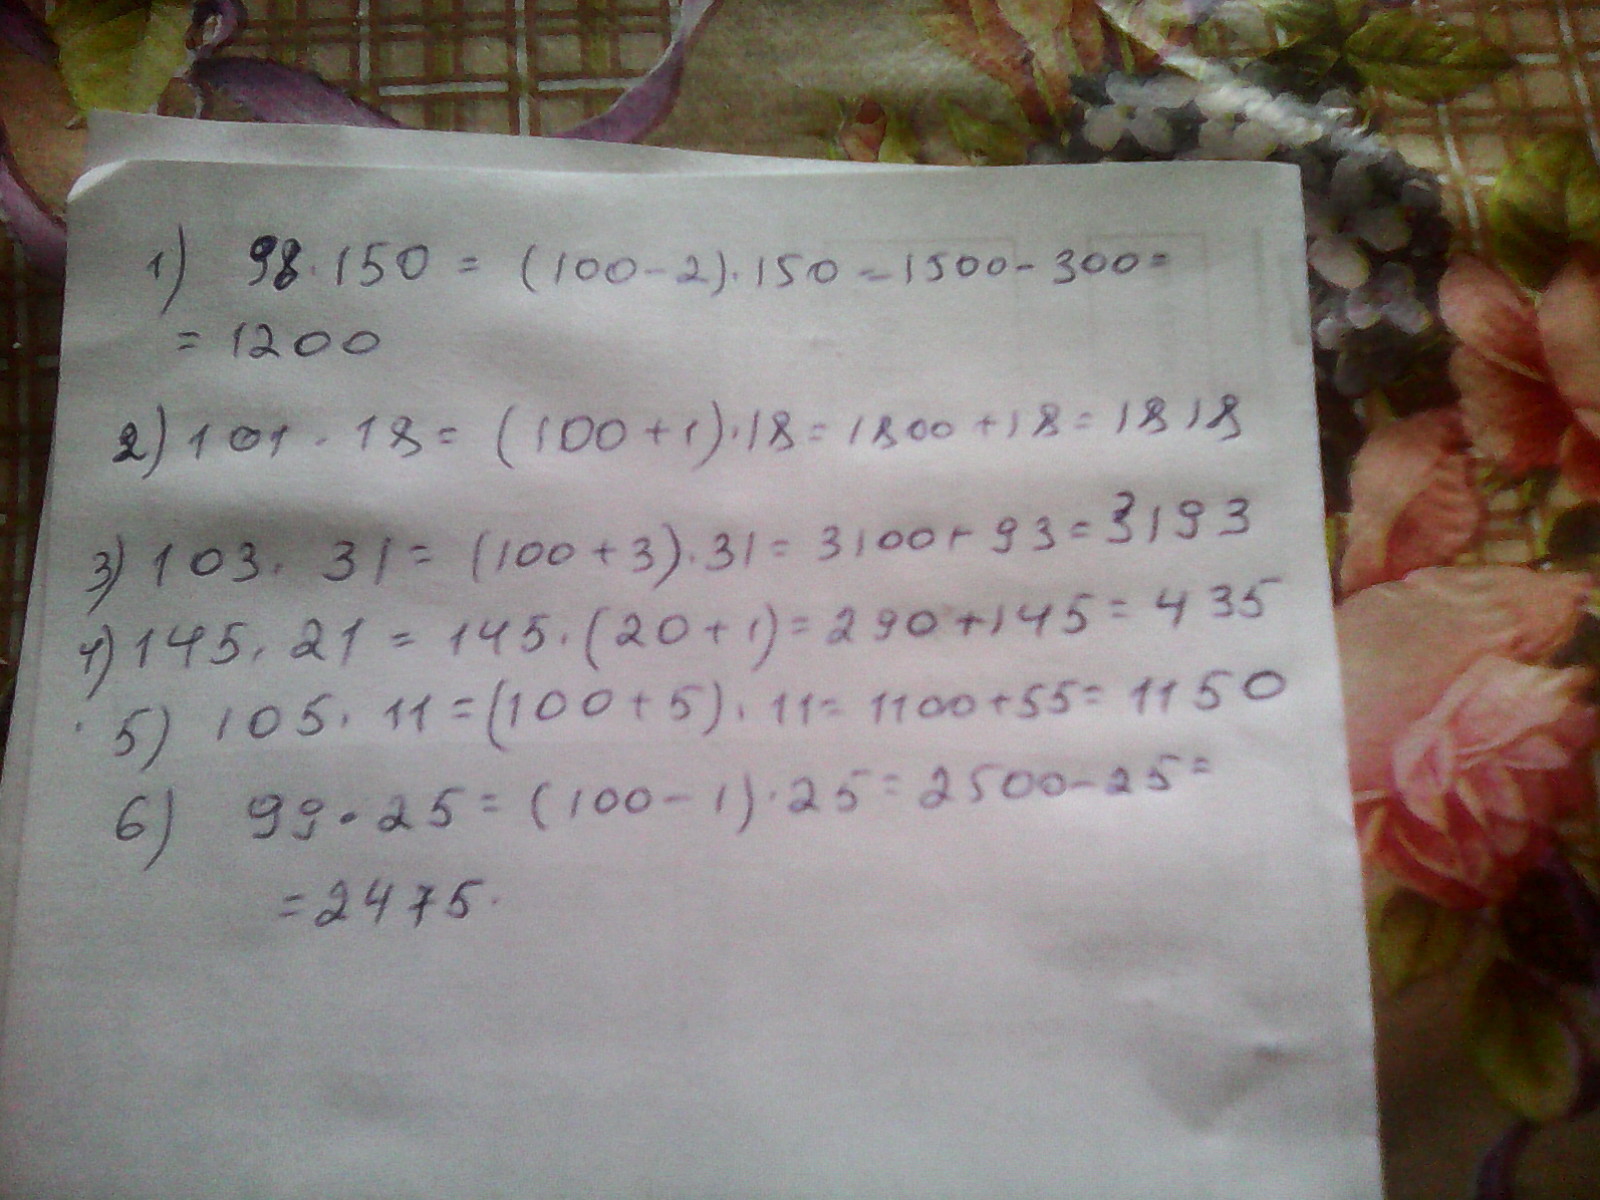 1) 98·150 = (100-2)·150 = 1500-300=
= 1200
2) 101·18 = (100+1)·18 = 1800+18 = 1818
3) 103·31 = (100+3)·31 = 3100+93 = 3193
4) 145·21 = 145·(20+1) = 290+145 = 435
5) 105·11 = (100+5)·11 = 1100+55 = 1150
6) 99·25 = (100-1)·25 = 2500-25=
= 2475.